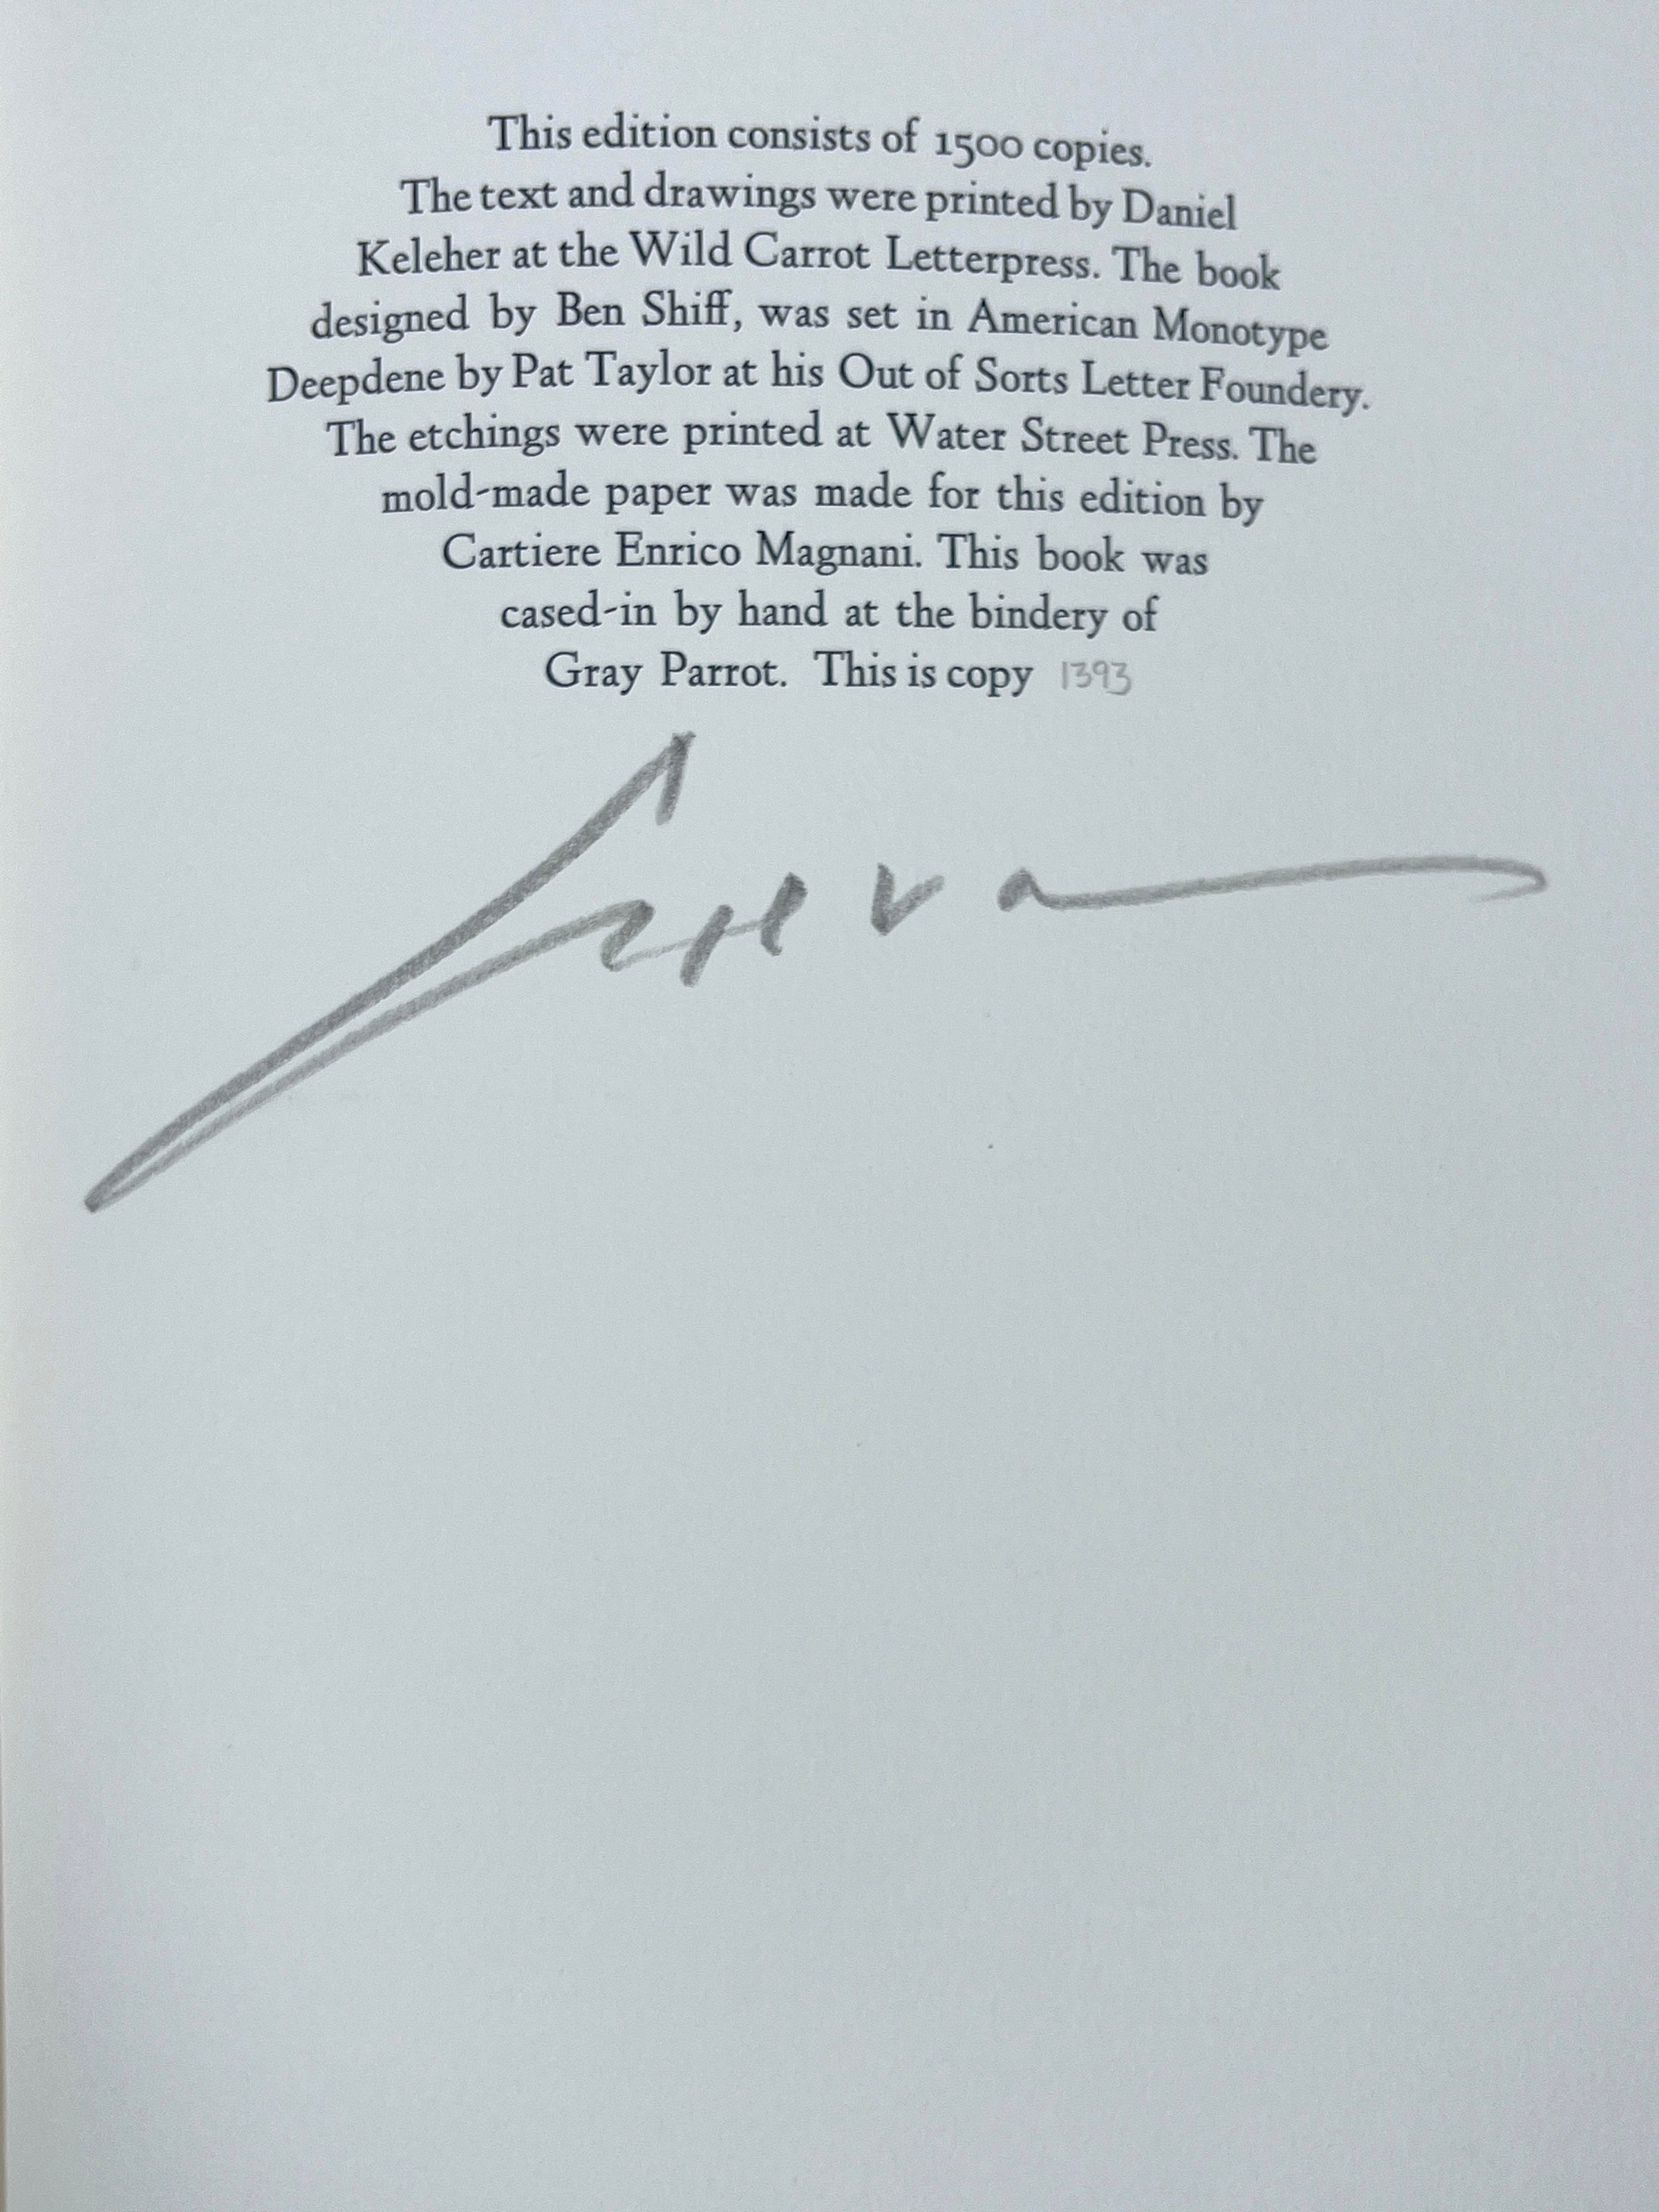 This edition consists of 1500 copies.
The text and drawings were printed by Daniel
Keleher at the Wild Carrot Letterpress. The book
designed by Ben Shiff, was set in American Monotype
Deepdene by Pat Taylor at his Out of Sorts Letter Foundery.
The etchings were printed at Water Street Press. The
mold-made paper was made for this edition by
Cartiere Enrico Magnani. This book was
cased-in by hand at the bindery of
Gray Parrot. This is copy 1393